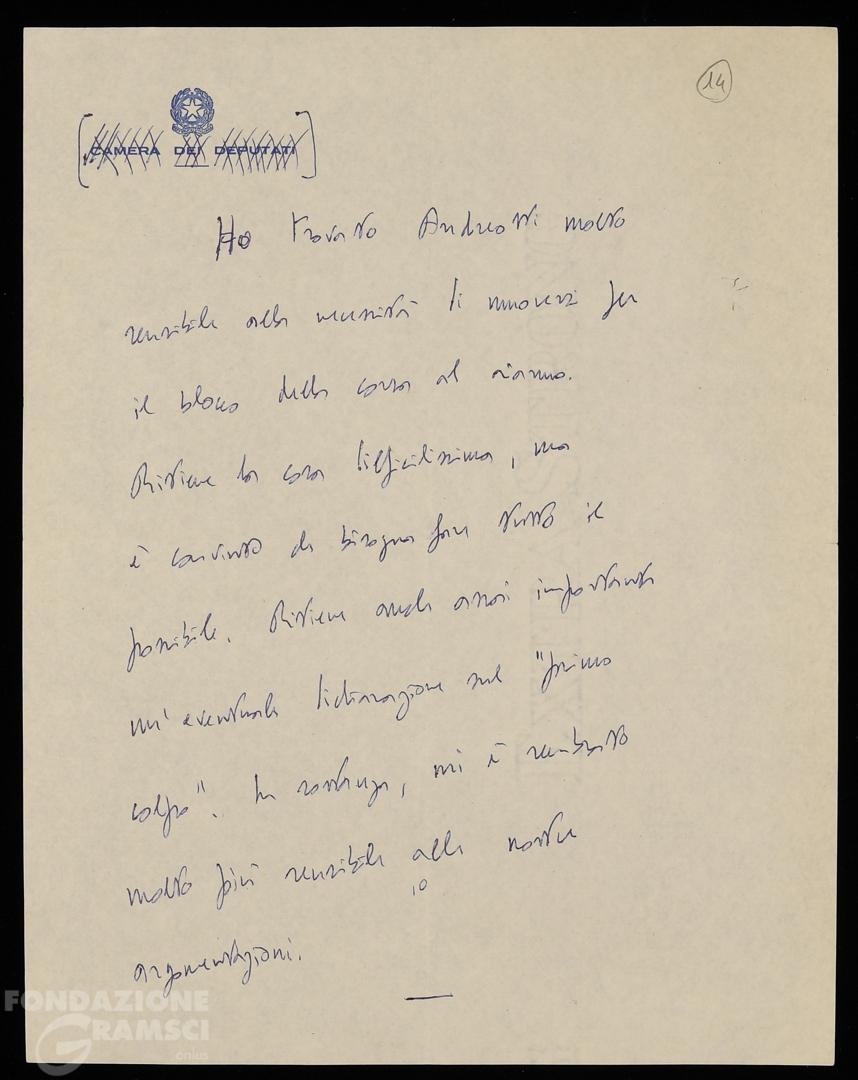 14
CAMERA DEI DEPUTATI
Ho trovato Andreotti molto
sensibile alla necessità di muoversi per
il blocco della corsa al riarmo.
Ritiene la cosa difficilissima, ma
è convinto che bisogna fare tutto il
possibile. Ritiene anche assai importante
un'eventuale dichiarazione sul "primo
colpo". In sostanza, mi è sembrato
molto più sensibile alle nostre
10
argomentazioni.
FONDAZIONE
GRAMSCI
onlus